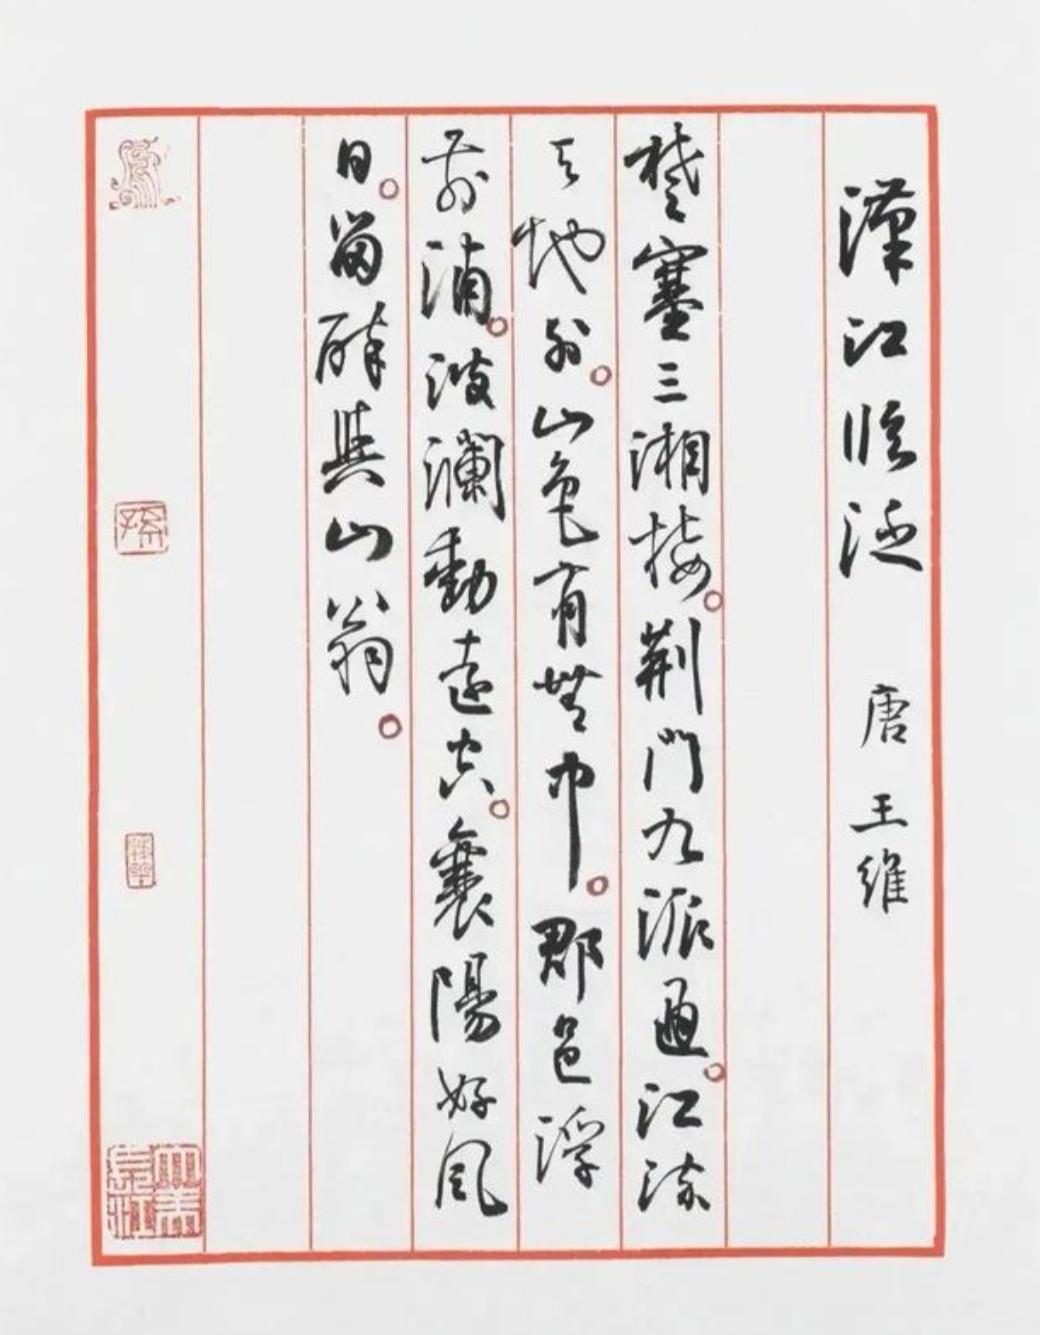 漢江臨泛 唐 王維
楚塞三湘接。荊門九派通。江流
天地外。山色有無中。郡邑浮
前浦。波瀾動遠空。襄陽好風
日。留醉與山翁。
孫